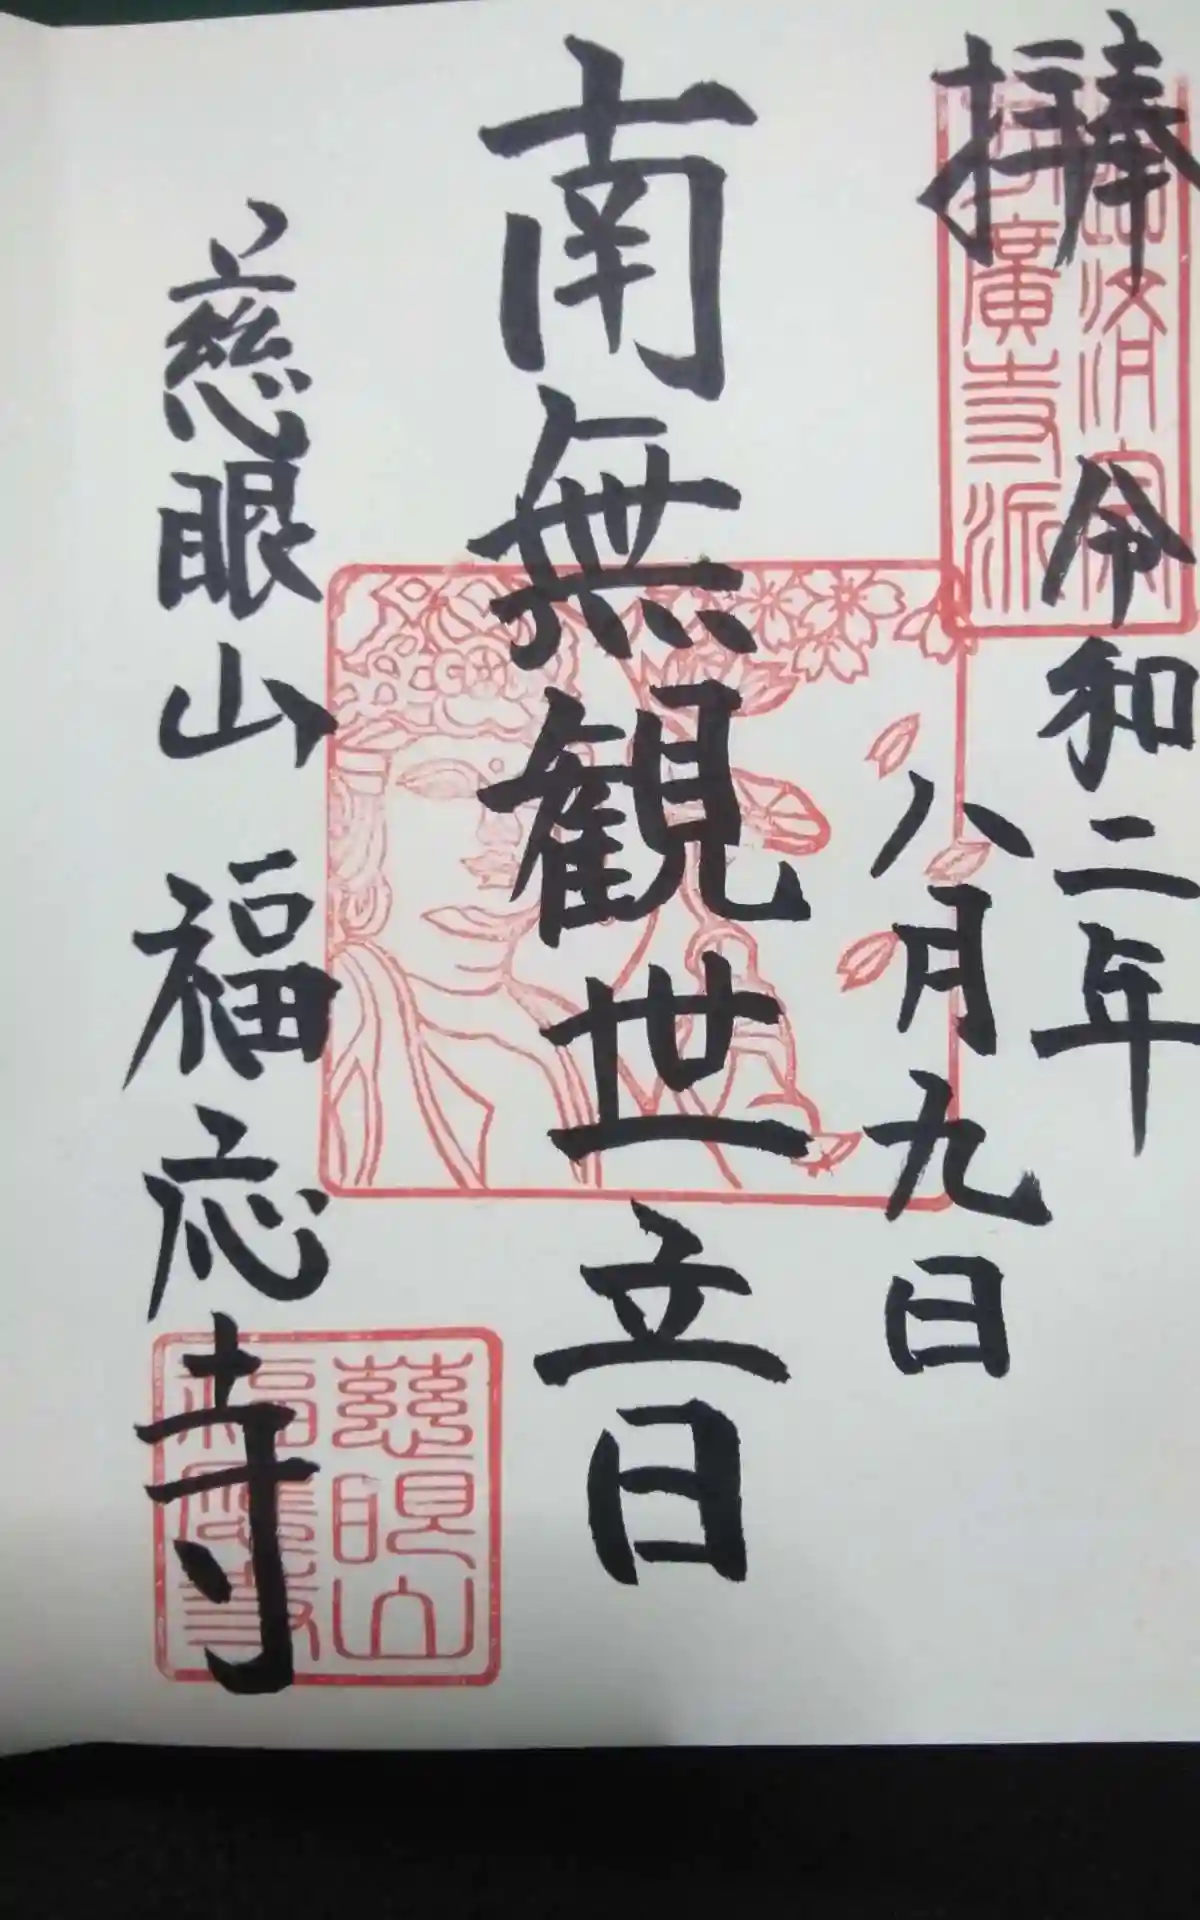 奉拝
令和二年
八月九日
南無観世音
慈眼山 福応寺
臨済宗
方廣寺派
慈眼山
福應寺